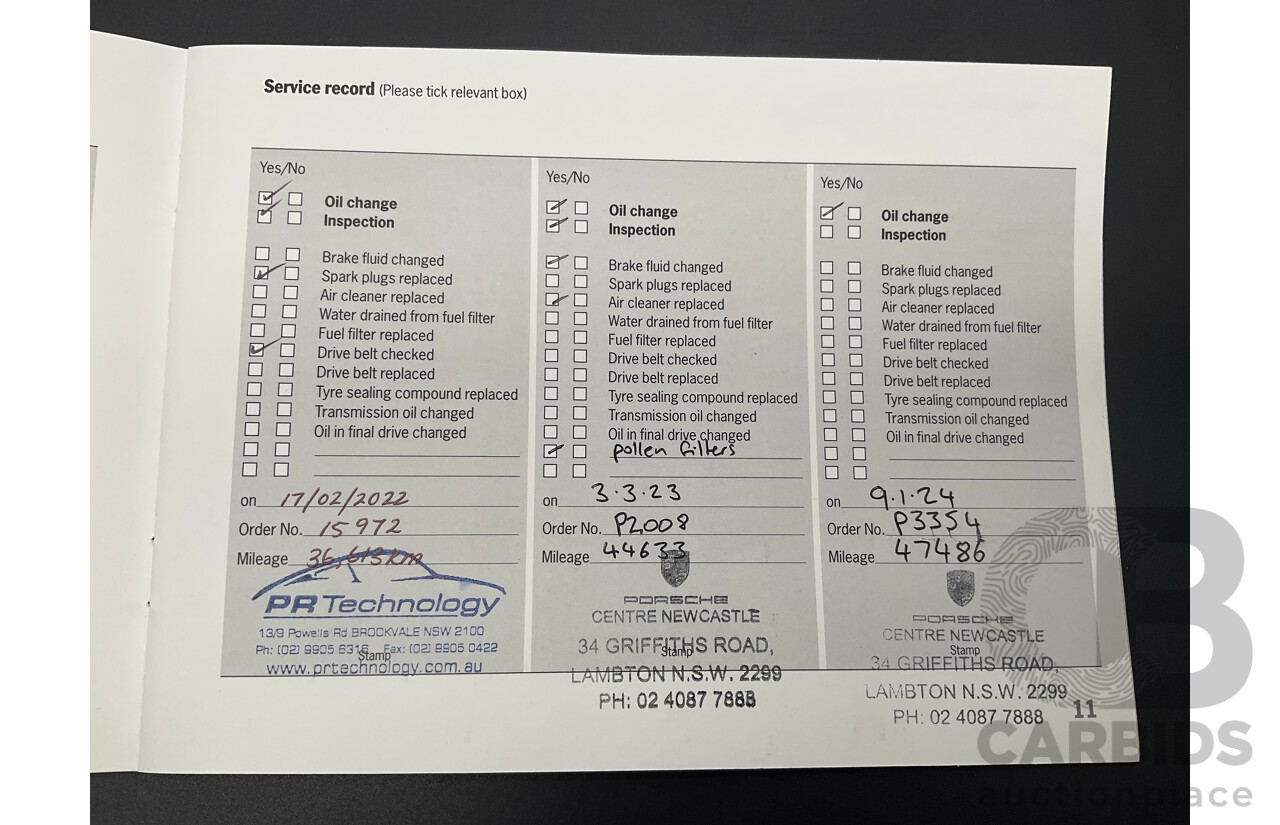 Service record (Please tick relevant box)
Yes/No
Oil change
Inspection
Brake fluid changed
Spark plugs replaced
Air cleaner replaced
Water drained from fuel filter
Fuel filter replaced
Drive belt checked
Drive belt replaced
Tyre sealing compound replaced
Transmission oil changed
Oil in final drive changed
on 17/02/2022
Order No. 15972
Mileage 36,613km
PR Technology
13/9 Powells Rd BROCKVALE NSW 2100
Ph: (02) 9905 Fax: (02) 9905 0422
Stamp
www.prtechnology.com.au
Yes/No
Oil change
Inspection
Brake fluid changed
Spark plugs replaced
Air cleaner replaced
Water drained from fuel filter
Fuel filter replaced
Drive belt checked
Drive belt replaced
Tyre sealing compound replaced
Transmission oil changed
Oil in final drive changed
pollen filters
on 3.3.23
Order No. P2008
Mileage 44633
PORSCHE
CENTRE NEWCASTLE
34 GRIFFITHS ROAD,
Stamp
LAMBTON N.S.W. 2299
PH: 02 4087 7888
Yes/No
Oil change
Inspection
Brake fluid changed
Spark plugs replaced
Air cleaner replaced
Water drained from fuel filter
Fuel filter replaced
Drive belt checked
Drive belt replaced
Tyre sealing compound replaced
Transmission oil changed
Oil in final drive changed
on 9.1.24
Order No. P3354
Mileage 47486
PORSCHE
CENTRE NEWCASTLE
Stamp
34 GRIFFITHS ROAD,
LAMBTON N.S.W. 2299
PH: 02 4087 7888
11
CB
CARBIDS
auctionplace